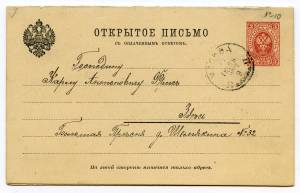 ОТКРЫТОЕ ПИСЬМО
СЪ ОПЛАЧЕННЫМЪ ОТВѢТОМЪ.
Господину
Карлу Антоновичу
Здѣсь
Большая Прѣсня д. № 32
На этой сторонѣ пишется только адресъ.